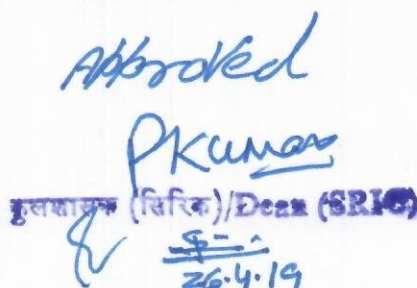 Approved
PKumar
कुलशासक (सिरिक)/Dean (SRIC)
26.4.19